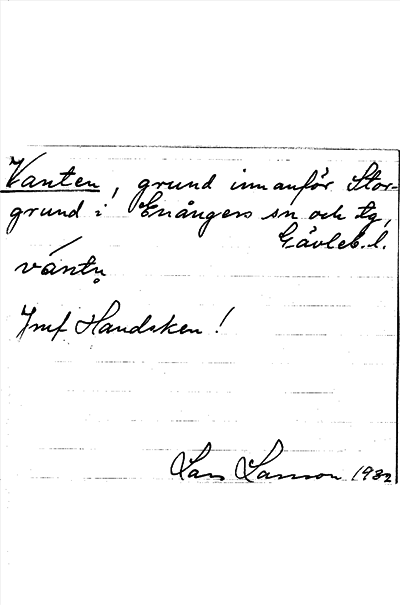 Vanten, grund innanför Stor-
grund i Enångers sn och tg,
Gävleb. l.
vántn̥
Jmf Handsken!
Lars Larsson 1932